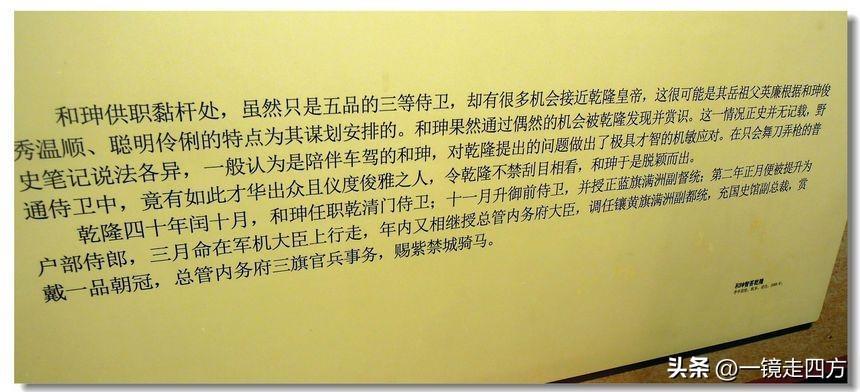 和珅供职黏杆处，虽然只是五品的三等侍卫，却有很多机会接近乾隆皇帝，这很可能是其岳祖父英廉根据和珅俊
秀温顺、聪明伶俐的特点为其谋划安排的。和珅果然通过偶然的机会被乾隆发现并赏识。这一情况正史并无记载，野
史笔记说法各异，一般认为是陪伴车驾的和珅，对乾隆提出的问题做出了极具才智的机敏应对。在只会舞刀弄枪的普
通侍卫中，竟有如此才华出众且仪度俊雅之人，令乾隆不禁刮目相看，和珅于是脱颖而出。
乾隆四十年闰十月，和珅任职乾清门侍卫；十一月升御前侍卫，并授正蓝旗满洲副都统；第二年正月便被提升为
户部侍郎，三月命在军机大臣上行走，年内又相继授总管内务府大臣，调任镶黄旗满洲副都统，充国史馆副总裁，赏
戴一品朝冠，总管内务府三旗官兵事务，赐紫禁城骑马。
和珅智答乾隆
头条 @一镜走四方